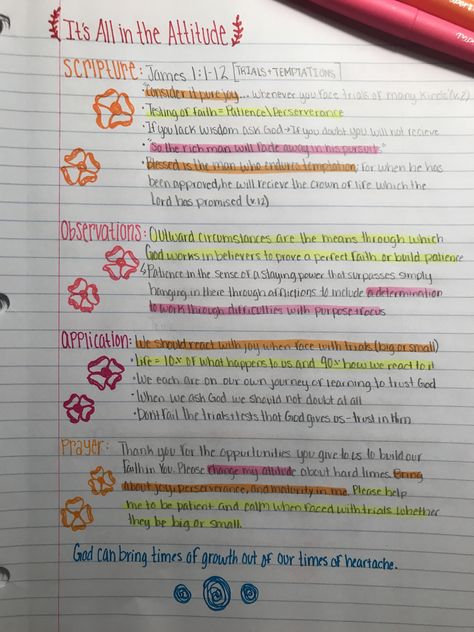 It's All in the Attitude
SCRIPTURE: James 1:1-12 [TRIALS + TEMPTATIONS]
• "Consider it pure joy... whenever you face trials of many kinds" (v.2)
• Testing of faith = Patience/Perserverance
• If you lack wisdom ask God → If you doubt you will not recieve
• "So the rich man will fade away in his pursuits"
• Blessed is the man who endures temptation; for when he has
been approved, he will recieve the crown of life which the
Lord has promised (v.12)
Observations: Outward circumstances are the means through which
God works in believers to prove a perfect faith or build patience
↳ Patience in the sense of a staying power that surpasses simply
hanging in there through afflictions to include a determination
to work through difficulties with purpose focus
Application: We should react with joy when face with trials (big or small)
• Life = 10% of what happens to us and 90% how we react to it
• We each are on our own journey of learning to trust God
• When we ask God we should not doubt at all
• Don't fail the trials + tests that God gives us - trust in Him
Prayer: Thank you for the opportunities you give to us to build our
faith in You. Please change my attitude about hard times. Bring
about joy, perserverance, and maturity in me. Please help
me to be patient and calm when faced with trials whether
they be big or small.
God can bring times of growth out of our times of heartache.